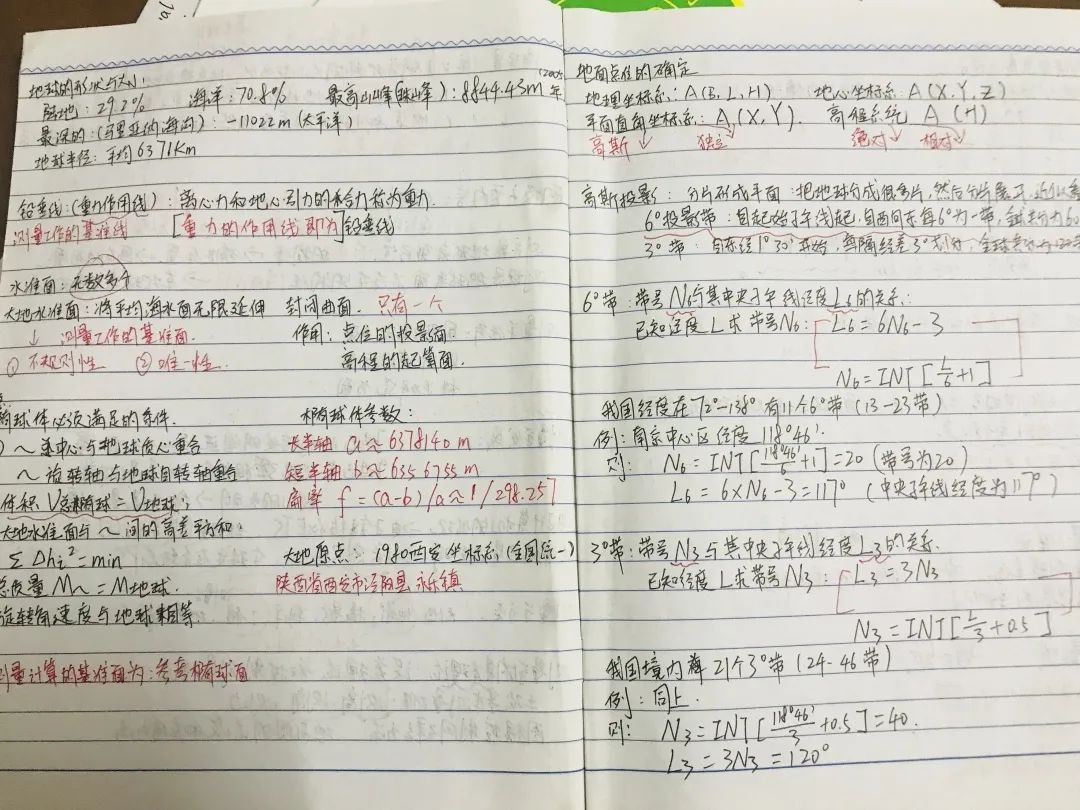 地球的形状与大小:
陆地: 29.2% 海洋: 70.8% 最高山峰(珠峰): 8844.43m (2005年
最深的: (马里亚纳海沟): -11022m (太平洋)
地球半径: 平均6371Km
铅垂线: (重力作用线): 离心力和地心引力的合力称为重力
测量工作的基准线 [重力的作用线即为]铅垂线
水准面: 无数多个
大地水准面: 将平均海水面无限延伸 封闭曲面. 只有一个
↓ 测量工作的基准面. 作用: 点位的投影面.
① 不规则性 ② 唯一性. 高程的起算面.
椭球体必须满足的条件. 椭球体参数:
~ 中心与地球质心重合 长半轴 a≈6378140m
~ 旋转轴与地球自转轴重合 短半轴 b≈6356755m
体积 V总椭球=V地球; 扁率 f=(a-b)/a≈1/298.257
大地水准面与~间的高差平方和:
Σ Δhi²=min 大地原点: 1980西安坐标系(全国统一)
总质量 M~=M地球. 陕西省西安市泾阳县永乐镇
旋转角速度与地球相等.
测量计算的基准面为: 参考椭球面
地面点位的确定
地理坐标系: A(B, L, H) 地心坐标系: A(X, Y, Z)
平面直角坐标系: A(X, Y). 高程系统 A (H)
高斯 独立 绝对 相对
高斯投影: 分片形成平面: 把地球分成很多片, 然后分片展开,
6°投影带: 自起始子午线起, 自西向东每6°为一带, 全球分为60
3°带: 自东经1°30′开始, 每隔经差3°划分, 全球
6°带: 带号N6与其中央子午线经度L6的关系:
已知经度L求带号N6: L6=6N6-3
N6=INT[L/6+1]
我国经度在72°-138° 有11个6°带 (13-23带)
例: 南京中心区经度118°46′.
则: N6=INT[118°46′/6+1]=20 (带号为20)
L6=6×N6-3=117° (中央子午线经度为117°)
3°带: 带号N3与其中央子午线经度L3的关系.
已知经度L求带号N3: L3=3N3
N3=INT[L/3+0.5]
我国境内有21个3°带 (24-46带)
例: 同上.
则: N3=INT[118°46′/3+0.5]=40.
L3=3N3=120°